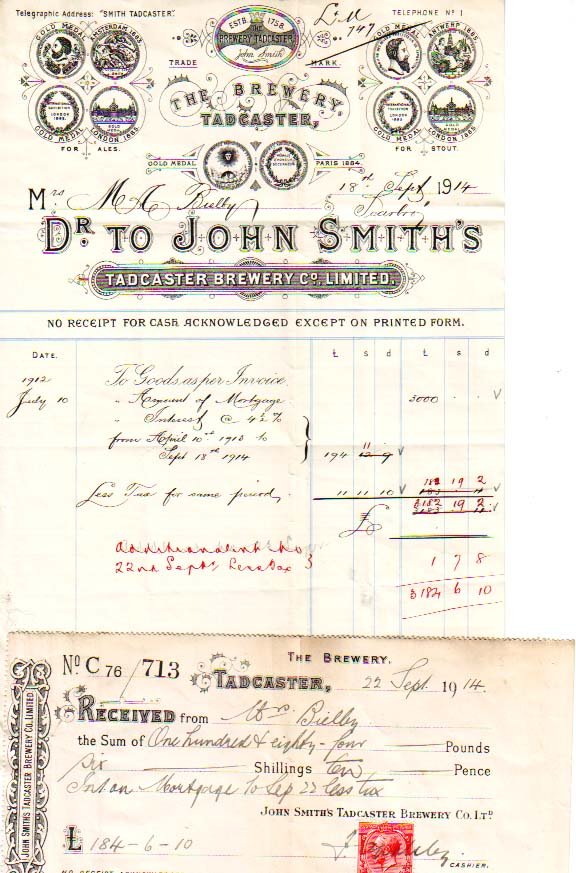 Telegraphic Address: "SMITH TADCASTER".
L. M 747
TELEPHONE Nº 1
ESTB. 1758.
THE BREWERY TADCASTER
John Smith
TRADE MARK.
GOLD MEDAL AMSTERDAM 1883.
GOLD MEDAL ANTWERP 1885.
INTERNATIONAL EXHIBITION LONDON 1885.
GOLD MEDAL
GOLD MEDAL LONDON 1885
FOR ALES.
INTERNATIONAL EXHIBITION LONDON 1885.
GOLD MEDAL
GOLD MEDAL LONDON 1885
FOR STOUT.
THE BREWERY
TADCASTER,
GOLD MEDAL PARIS 1884.
18th Sept 1914
Mrs M A Bielby
Scarbro'
DR. TO JOHN SMITH'S
TADCASTER BREWERY Cº. LIMITED.
NO RECEIPT FOR CASH ACKNOWLEDGED EXCEPT ON PRINTED FORM.
DATE. £ s d £ s d
1912 To Goods as per Invoice
July 10 " Amount of Mortgage 3000 . .
" Interest @ 4½ %
from April 10th 1913 to
Sept 18th 1914 194 11
182 19 2
Less Tax for same period, 11 11 10
3182 19 2
£
Additional int to
22nd Sept Less tax 1 7 8
3184 6 10
THE BREWERY.
Nº C 76/713 TADCASTER, 22 Sept. 1914.
RECEIVED from Mrs. Bielby
the Sum of One hundred & eighty-four Pounds
Six Shillings Ten Pence
Int on Mortgage to Sep 22 less tax
JOHN SMITH'S TADCASTER BREWERY CO. LTD.
£ 184-6-10
CASHIER.
JOHN SMITHS TADCASTER BREWERY CO. LIMITED